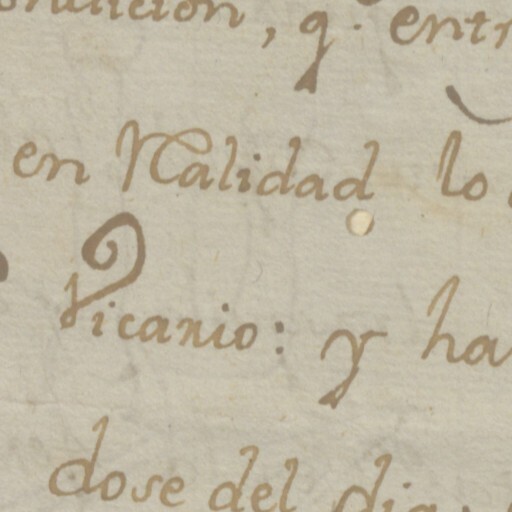 ondicion, q. entr
en Realidad lo
Vicario: y ha
dose del dia